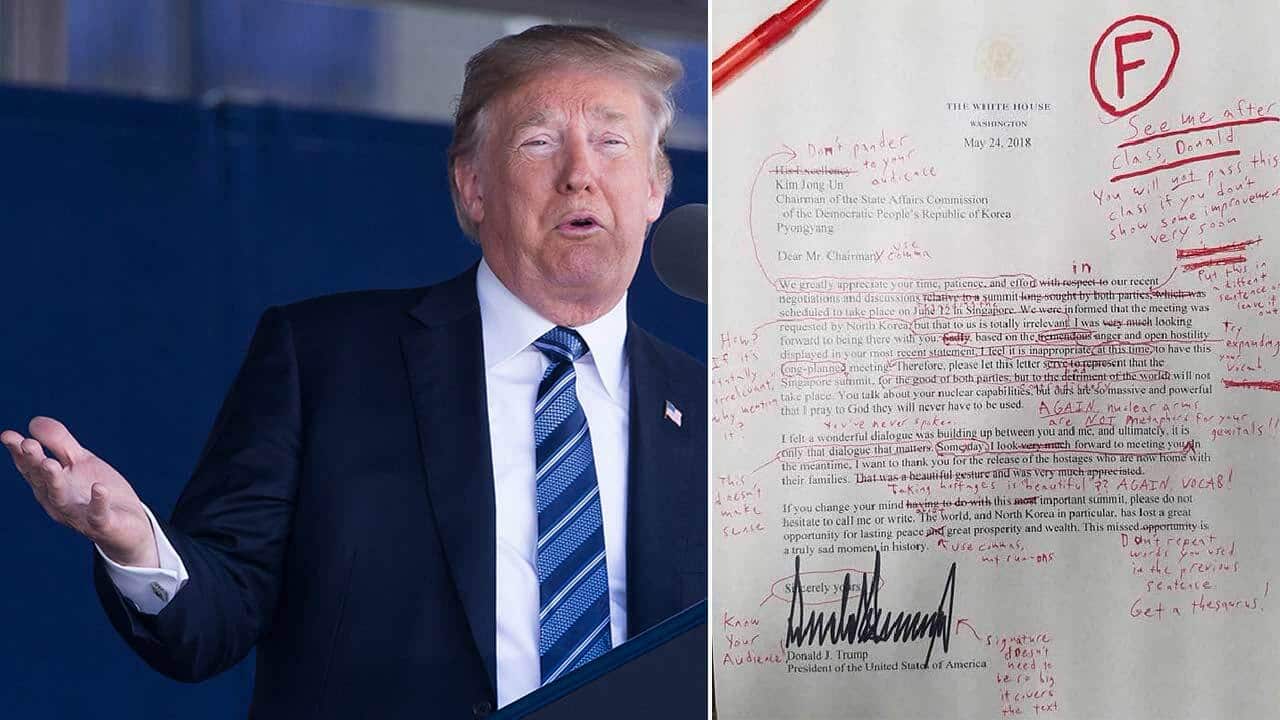 F
See me after
class, Donald
You will not pass this
class if you don't
show some improvement
very soon
THE WHITE HOUSE
WASHINGTON
May 24, 2018
Don't pander
to your
audience
His Excellency
Kim Jong Un
Chairman of the State Affairs Commission
of the Democratic People's Republic of Korea
Pyongyang
Dear Mr. Chairman
use
comma
in
We greatly appreciate your time, patience, and effort with respect to our recent
negotiations and discussions relative to a summit long sought by both parties, which was
scheduled to take place on June 12 in Singapore. We were informed that the meeting was
requested by North Korea, but that to us is totally irrelevant. I was very much looking
forward to being there with you. Sadly, based on the tremendous anger and open hostility
displayed in your most recent statement, I feel it is inappropriate, at this time, to have this
long-planned meeting. Therefore, please let this letter serve to represent that the
Singapore summit, for the good of both parties, but to the detriment of the world, will not
take place. You talk about your nuclear capabilities, but ours are so massive and powerful
that I pray to God they will never have to be used.
put this in
different
sentence or
leave it
out
How?
If it's
totally
irrelevant,
why mention
it?
Try
expanding
your
vocab
AGAIN, nuclear arms
are NOT metaphors for your
genitals!!
You've never spoken
I felt a wonderful dialogue was building up between you and me, and ultimately, it is
only that dialogue that matters. Someday, I look very much forward to meeting you. In
the meantime, I want to thank you for the release of the hostages who are now home with
their families. That was a beautiful gesture and was very much appreciated.
This
doesn't
make
sense
Taking hostages is beautiful?? AGAIN, VOCAB!
If you change your mind having to do with this most important summit, please do not
hesitate to call me or write. The world, and North Korea in particular, has lost a great
opportunity for lasting peace and great prosperity and wealth. This missed opportunity is
a truly sad moment in history.
use commas,
not run-ons
Don't repeat
words you used
in the previous
sentence
Get a thesaurus!
Sincerely yours,
Know
Your
Audience!
Donald J. Trump
President of the United States of America
Signature
doesn't
need to
be so big
it covers
the text